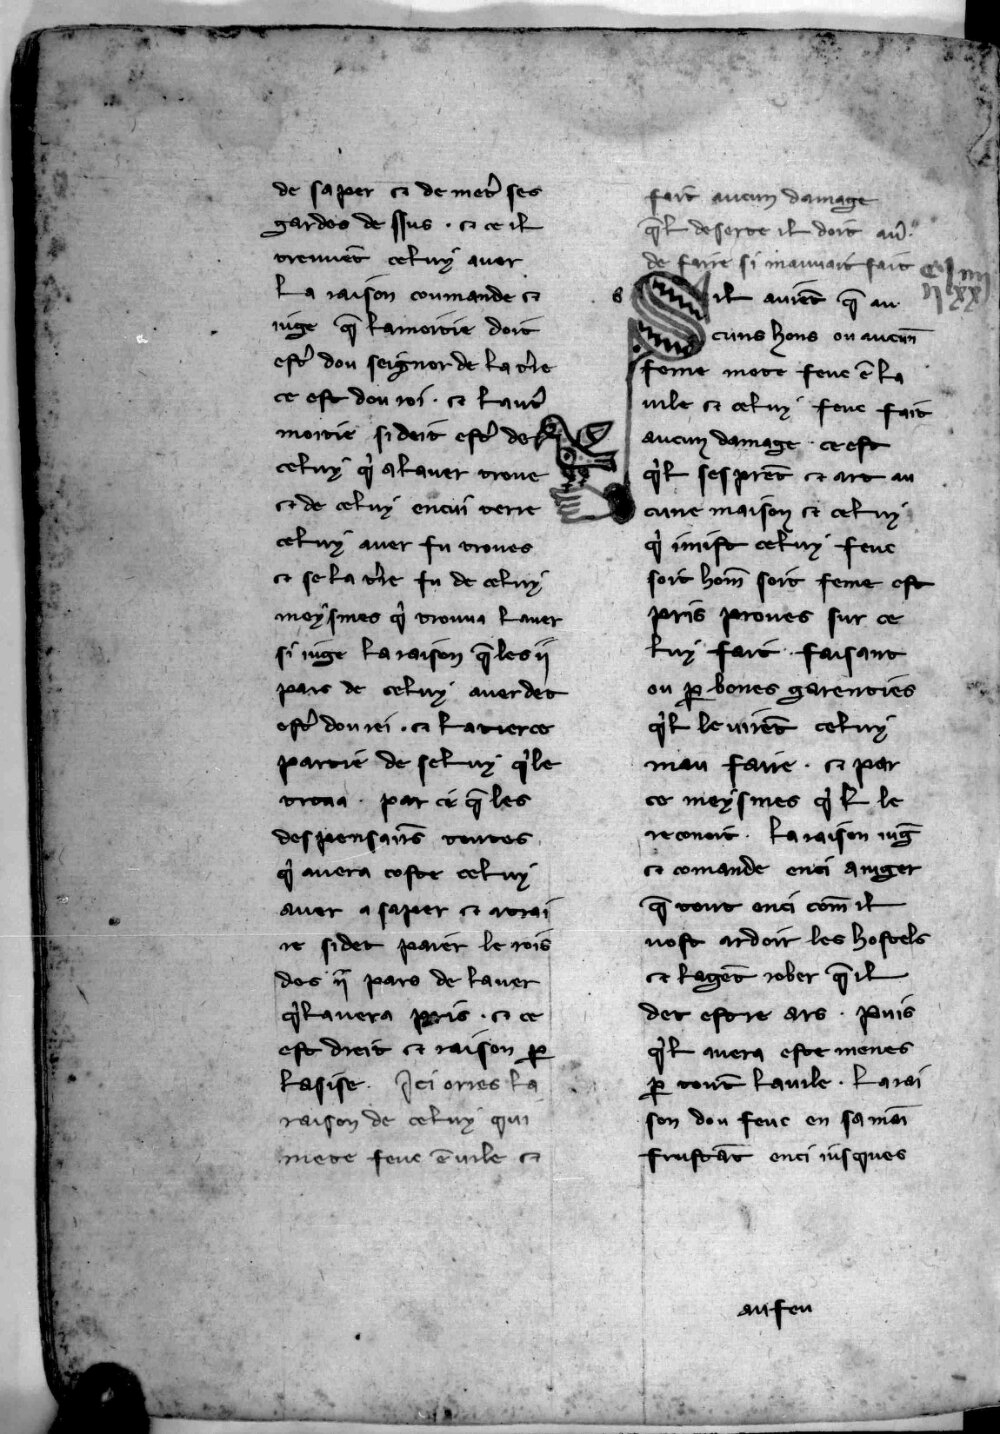 de saper et de metr̄ ses
gardes de ssus · et ce il
treuuēt celuy auer
La raison coumande et
iuge q̄ lamoitie doit
estr̄ dou seignor de la tr̄e
ce est dou roi · et lautr̄
moitie si deit estr̄ de
celuy q̇ a lauer troue
et de celuy encui terre
celuy auer fu troues
et se la tr̄e fu de celuy
meysmes q̇ trouua lauer
si iuge la raison q̄ les ij
pars de celuy auer det
estr̄ dou rei · et la tierce
partie de seluy q̇ le
troua · par ce q̄ les
despensairs̄ toutes
q̇ auera coste celuy
auer a saper et atrai
re si det paier le rois
des ij pars de lauer
q̇l auera pris · et ce
est dreit et raison p̱
lasise · Ici ories la
raison de celuy qui
mete feuc ē uile et
fait aucun damage
q̄l deserte il doit au̇͛
de faire si mauuait fait
S il auiēt q̄ au
cuns hons ou aucun̄
feme mete feuc ē la
uile et celuy feuc fait
aucun damage · ce est
q̇l sesprēt et art au
cune maison et celuy
q̇ i mist celuy feuc
soit hom̄ soit feme est
pris proues sur ce
luy fait faisant
ou p̱ bones garenties
q̇l le uirēt celuy
mau faire · et par
ce meysmes q̇ l le
reconoit · la raison iuḡ
et comande enci a iuger
q̄ tout enci com̄ il
uost ardoir les hostels
et lagēt rober q̄ il
det estre ars · Puis
q̇l auera este menes
p̱ tout̄ la uile · la rai
son dou feuc en sa māi
frustāt enci iusques
au feu